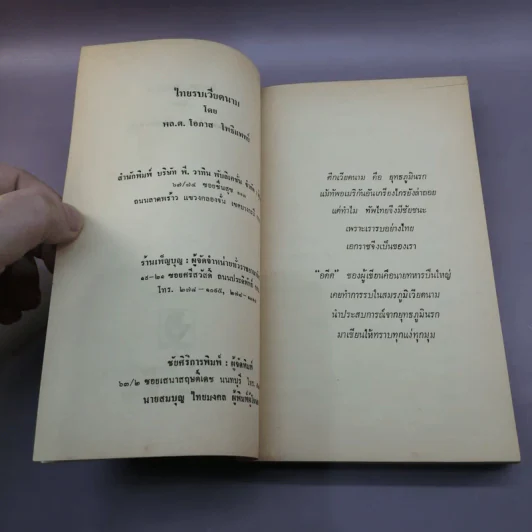 ไทยรบเวียดนาม
โดย
พล.ต. โอภาส โพธิแพทย์
สำนักพิมพ์ บริษัท พี. วาทิน พับลิเคชั่น จำกัด
๖๗/๗๔ ซอยชื่นสุข
ถนนลาดพร้าว แขวงคลองจั่น เขตบางกะปิ
ร้านเพ็ญบุญ : ผู้จัดจำหน่ายทั่วราชอาณาจักร
๑๙-๒๑ ซอยศรีสวัสดิ์ ถนนประดิพัทธ์
โทร. ๒๗๔-๑๐๙๕, ๒๗๔-
ชัยศิริการพิมพ์ : ผู้จัดพิมพ์
๖๓/๒ ซอยเสนาสฤษดิ์เดช นนทบุรี โทร.
นายสมบุญ ไทยมงคล ผู้พิมพ์ผู้โฆษณา
ศึกเวียดนาม คือ ยุทธภูมินรก
แม้ทัพอเมริกันอันเกรียงไกรยังล่าถอย
แต่ทำไม ทัพไทยจึงมีชัยชนะ
เพราะเรารบอย่างไทย
เอกราชจึงเป็นของเรา
"ยศศ์" ของผู้เขียนคือนายทหารปืนใหญ่
เคยทำการรบในสมรภูมิเวียดนาม
นำประสบการณ์จากยุทธภูมินรก
มาเขียนให้ทราบทุกแง่ทุกมุม